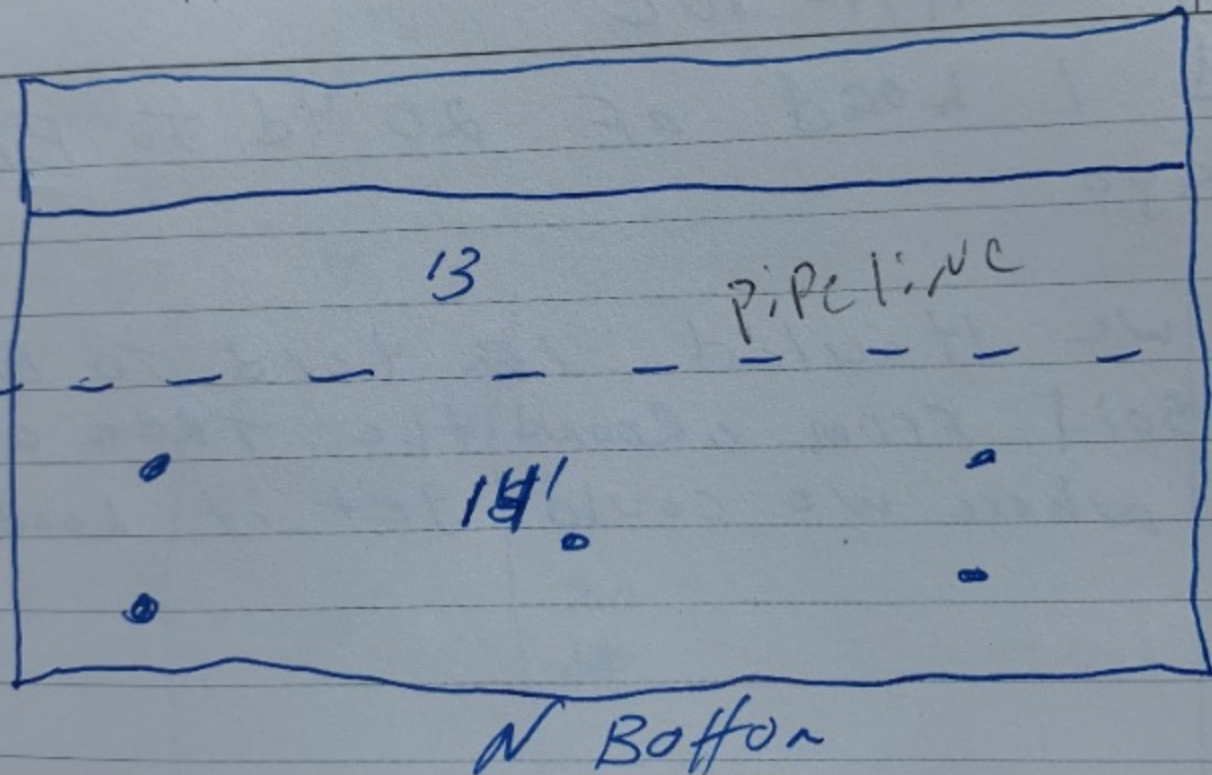 13
Pipeline
14'
N Bottom